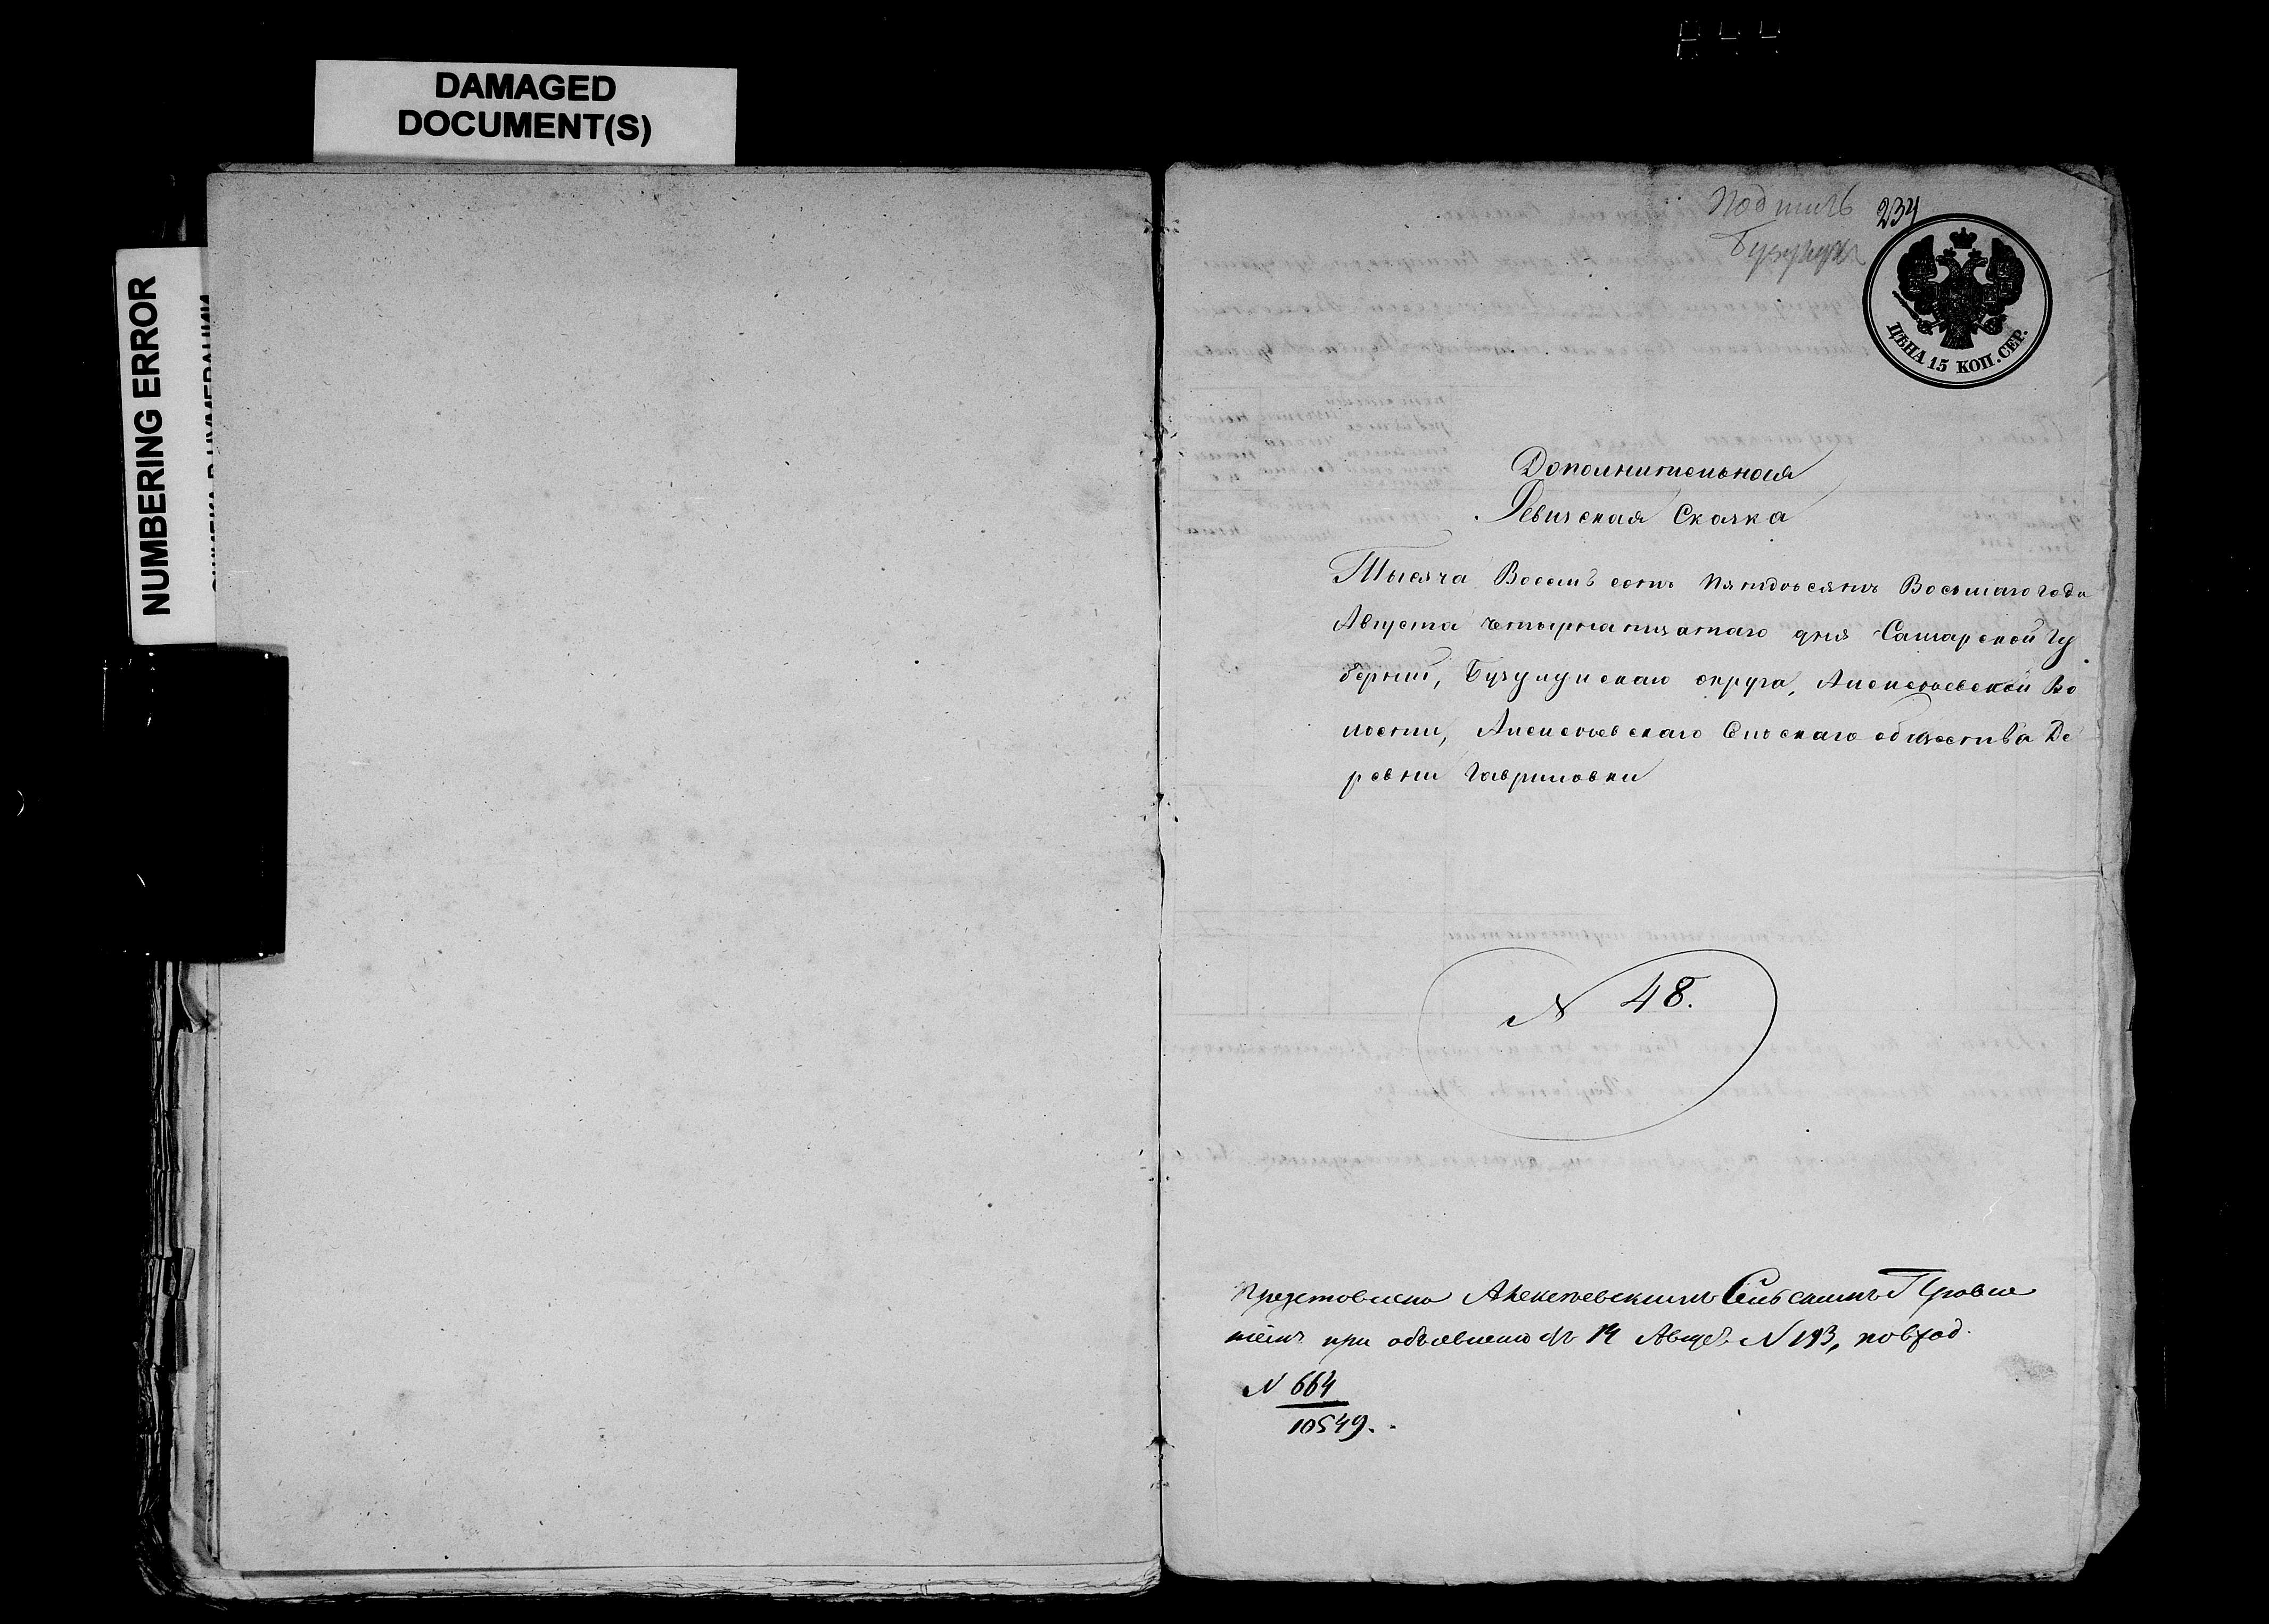 DAMAGED
DOCUMENT(S)
NUMBERING ERROR
234
Бузулук
ЦѢНА 15 КОП. СЕР.
Дополнительная
Ревизская Сказка
Тысяча Восемь сотъ пятдесятъ Восьмаго года
Августа четырнатцатаго дня Самарской Гу
берніи, Бузулукскаго округа, Алексѣевской Во
лости, Алексѣевскаго Сельскаго общества Де
ревни Гавриловки
N 48.
Представлена Алексѣевскимъ Сельскимъ Правле
ніемъ при объявленіи 14 Август N 193, по вход.
N 664
10549.